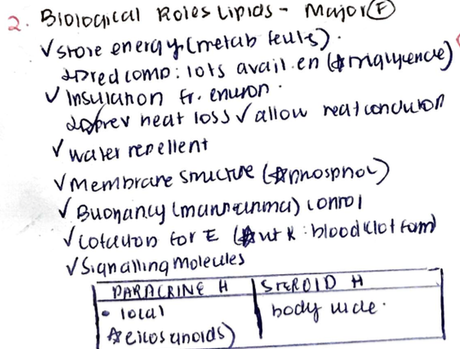 2. Biological Roles Lipids - Major Ⓕ
✓ store energy (metab fuels).
↳ red comp: lots avail. en (☆ triglycende)
✓ Insulation fr. environ.
↳ prev heat loss ✓ allow heat conduction
✓ water repellent
✓ Membrane structure (☆ phosphol)
✓ Buoyancy (mann anima) control
✓ Cofactor for E (☆ vit K : blood clot form)
✓ Signalling Molecules
PARACRINE H | STEROID H
• local | body wide.
☆ eicosanoids)